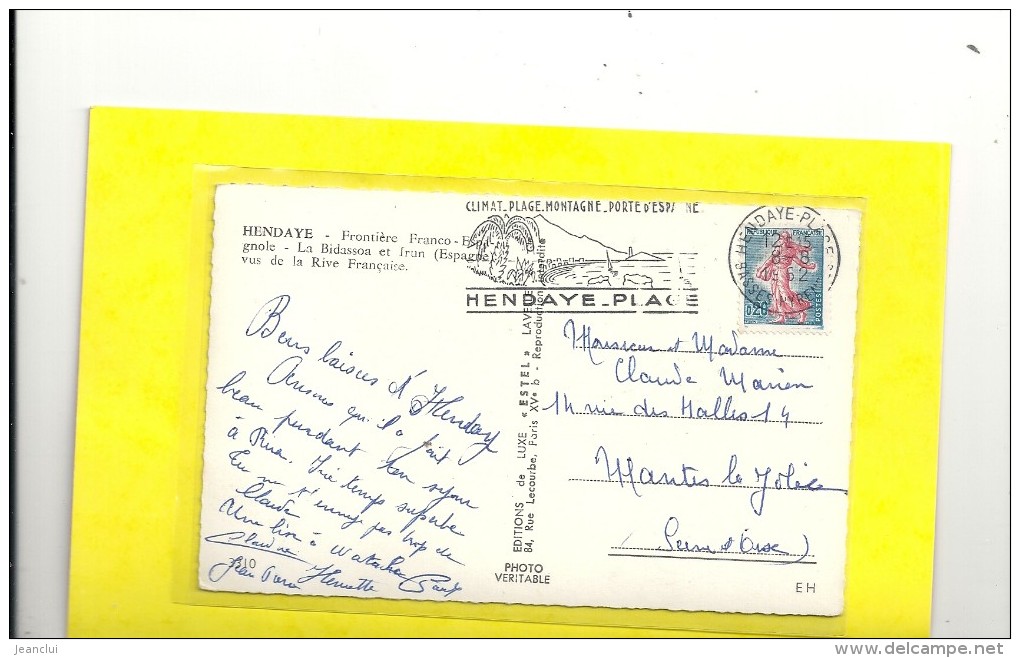 CLIMAT_PLAGE_MONTAGNE_PORTE D'ESPA NE
HENDAYE_PLAGE
HENDAYE-PLAGE
12 15
8 - 8
62
REPUBLIQUE FRANÇAISE
0,20
POSTES
HENDAYE - Frontière Franco-Espa
gnole - La Bidassoa et Irun (Espagne)
vus de la Rive Française.
Bons baisers d'Henday
qu'il a fait
beau pendant ton séjour
à temps superbe
En ne t'ennuye pas trop de
Claude
une bise à Natacha
Claudine Henriette Paul
Jean
310
EDITIONS de LUXE « ESTEL » LAVE
84, Rue Lecourbe, Paris XVe b - Reproduction interdite
PHOTO
VERITABLE
Monsieur et Madame
Claude Marien
14 rue des Halles 14
Mantes la Jolie
(Seine et Oise)
EH
jeanclui
www.delcampe.net